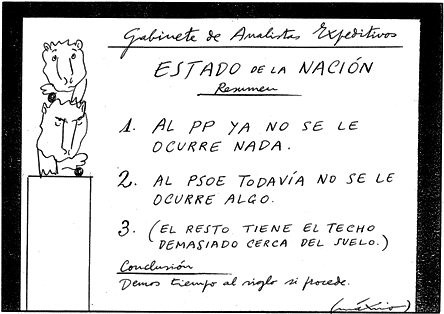 Gabinete de Analistas Expeditivos
ESTADO DE LA NACIÓN
Resumen
1. AL PP YA NO SE LE
OCURRE NADA.
2. AL PSOE TODAVÍA NO SE LE
OCURRE ALGO.
3. (EL RESTO TIENE EL TECHO
DEMASIADO CERCA DEL SUELO.)
Conclusión
Demos tiempo al siglo si procede.
(máximo)